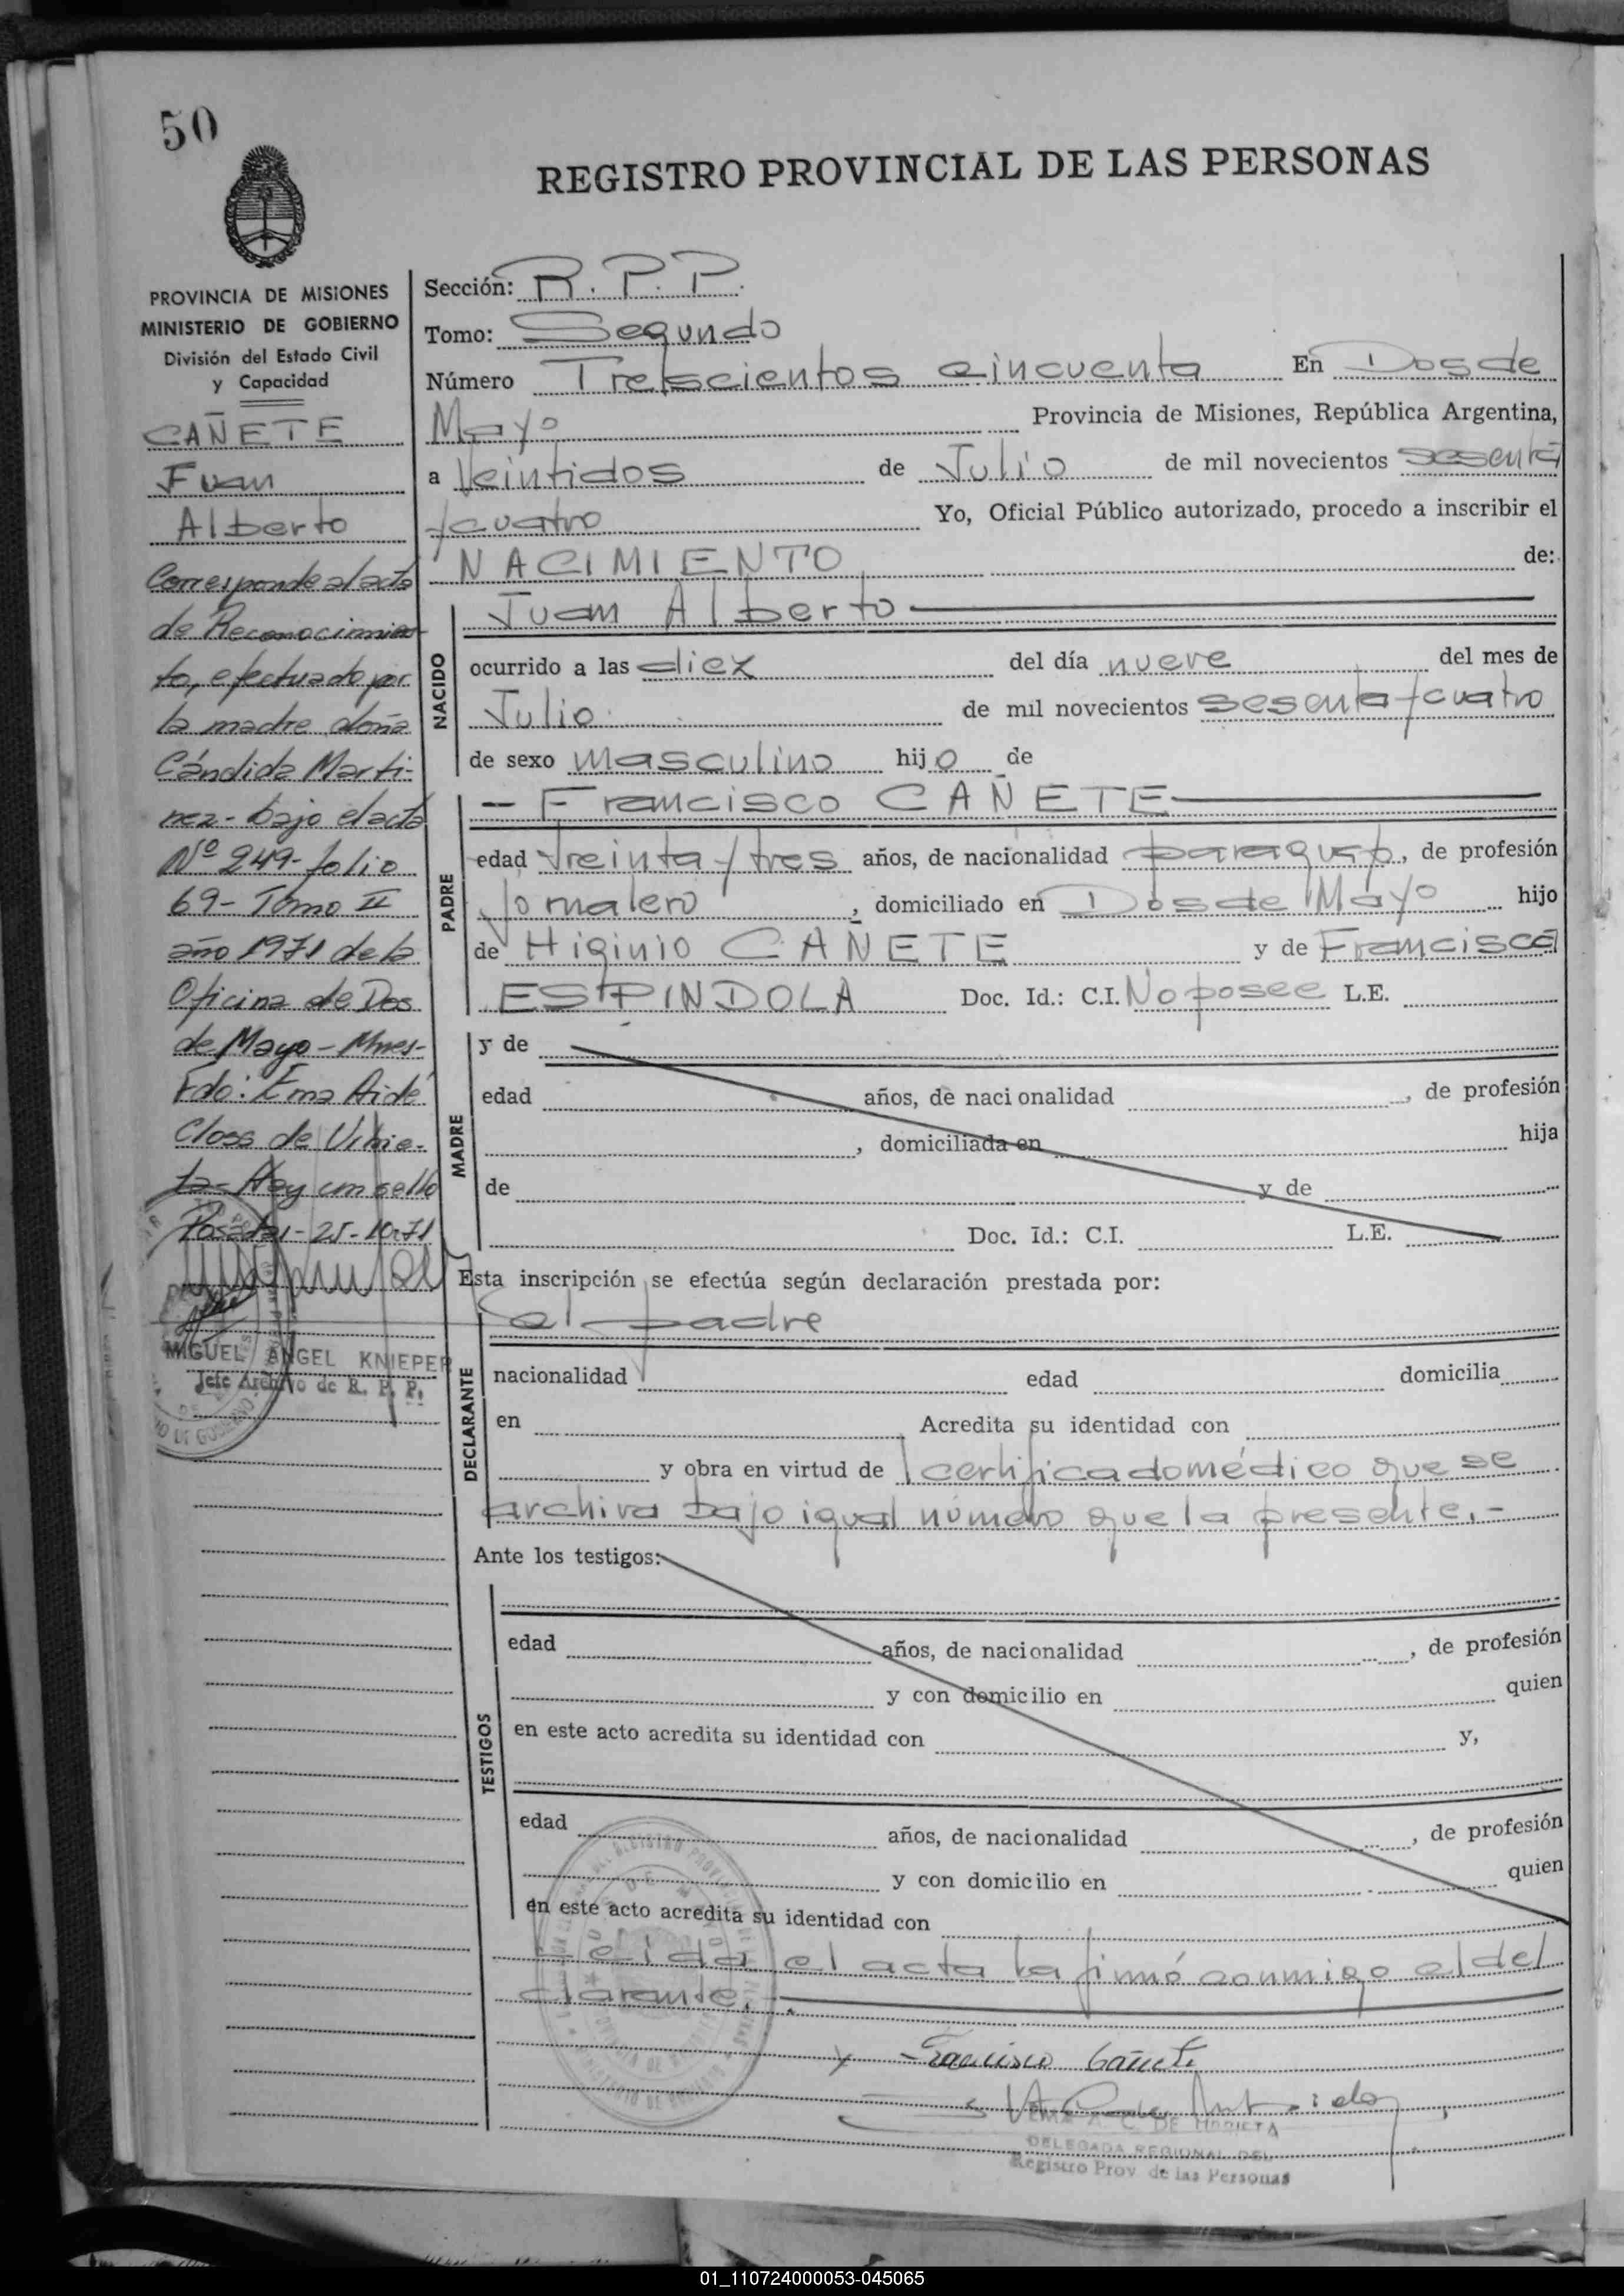 50
REGISTRO PROVINCIAL DE LAS PERSONAS
PROVINCIA DE MISIONES
MINISTERIO DE GOBIERNO
División del Estado Civil
y Capacidad
CAÑETE
Juan
Alberto
Corresponde al acta
de Reconocimien-
to, efectuado por
la madre doña
Cándida Marti-
nez - bajo el acta
Nº 249 - folio
69 - Tomo II
año 1971 de la
Oficina de Dos
de Mayo - Mnes -
Fdo: Ema Aidé
Closs de Urrie-
ta - Hay un sello
Posadas - 25-10-71
MIGUEL ANGEL KNIEPER
Jefe Archivo de R. P. P.
Sección: R. P. P.
Tomo: Segundo
Número Trescientos cincuenta En Dos de
Mayo Provincia de Misiones, República Argentina,
a Veintidos de Julio de mil novecientos sesenta
y cuatro Yo, Oficial Público autorizado, procedo a inscribir el
NACIMIENTO de:
NACIDO
Juan Alberto
ocurrido a las diez del día nueve del mes de
Julio de mil novecientos sesenta y cuatro
de sexo masculino hijo de
PADRE
- Francisco CAÑETE
edad treinta y tres años, de nacionalidad paraguayo, de profesión
Jornalero, domiciliado en Dos de Mayo hijo
de Higinio CAÑETE y de Francisca
ESPINDOLA Doc. Id.: C.I. No posee L.E.
MADRE
y de
edad años, de nacionalidad , de profesión
, domiciliada en hija
de y de
Doc. Id.: C.I. L.E.
Esta inscripción se efectúa según declaración prestada por:
DECLARANTE
el padre
nacionalidad edad domicilia
en Acredita su identidad con
y obra en virtud de certificado médico que se
archiva bajo igual número que la presente.-
Ante los testigos:
TESTIGOS
edad años, de nacionalidad , de profesión
y con domicilio en quien
en este acto acredita su identidad con y,
edad años, de nacionalidad , de profesión
y con domicilio en quien
en este acto acredita su identidad con
Leida el acta la firmó conmigo el del
clarante.
Francisco Cañete
EMA A. C. DE URRIETA
DELEGADA REGIONAL DEL
Registro Prov. de las Personas
01_110724000053-045065